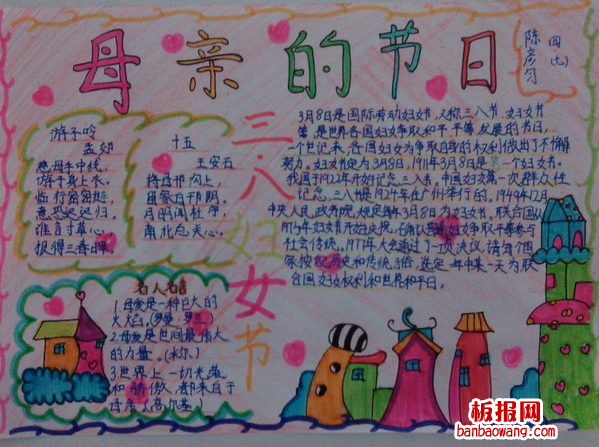 母亲的节日
陈彦匀
四(七)
游子吟
孟郊
慈母手中线，
游子身上衣。
临行密密缝，
意恐迟迟归。
谁言寸草心，
报得三春晖。
十五
王安石
将母邗沟上，
留家白邗阴。
月明闻杜宇，
南北总关心。
三·八妇女节
3月8日是国际劳动妇女节，又称三八节，妇女节
等，是世界各国妇女争取和平、平等、发展的节日，
一个世纪来，各国妇女为争取自身的权利做出了不懈
努力。妇女节定为3月8日，1911年3月8日是第一个妇女节。
我国于1922年开始记念三八节。中国妇女第一次群众性
记念三八节是1924年在广州举行的。1949年12月
中央人民政务院规定每年3月8日为妇女节，联合国从
1975年妇女节开始庆祝，
社会传统。1977年大会通过了一项决议，请每个国
家按照历史和传统习俗，选定一年中某一天为联
合国妇女权利和世界和平日。
名人名言
1.母爱是一种巨大的
火焰。(罗曼·罗兰)
2.母爱是世间最伟大
的力量。(米尔)
3.世界上一切光荣
和骄傲，都来自于
母亲(高尔基)
板报网
banbaowang.com